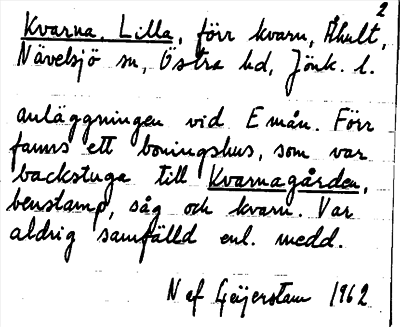 2
Kvarna, Lilla, förr kvarn, Åhult,
Nävelsjö sn, Östra hd, Jönk. l.
anläggningen vid Emån. Förr
fanns ett boningshus, som var
backstuga till Kvarnagården,
benstamp, såg och kvarn. Var
aldrig samfälld enl. medd.
N af Geijerstam 1962